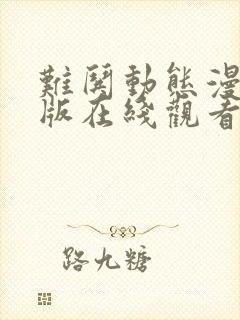 難鬨動態漫
版在綫觀看
路九糖